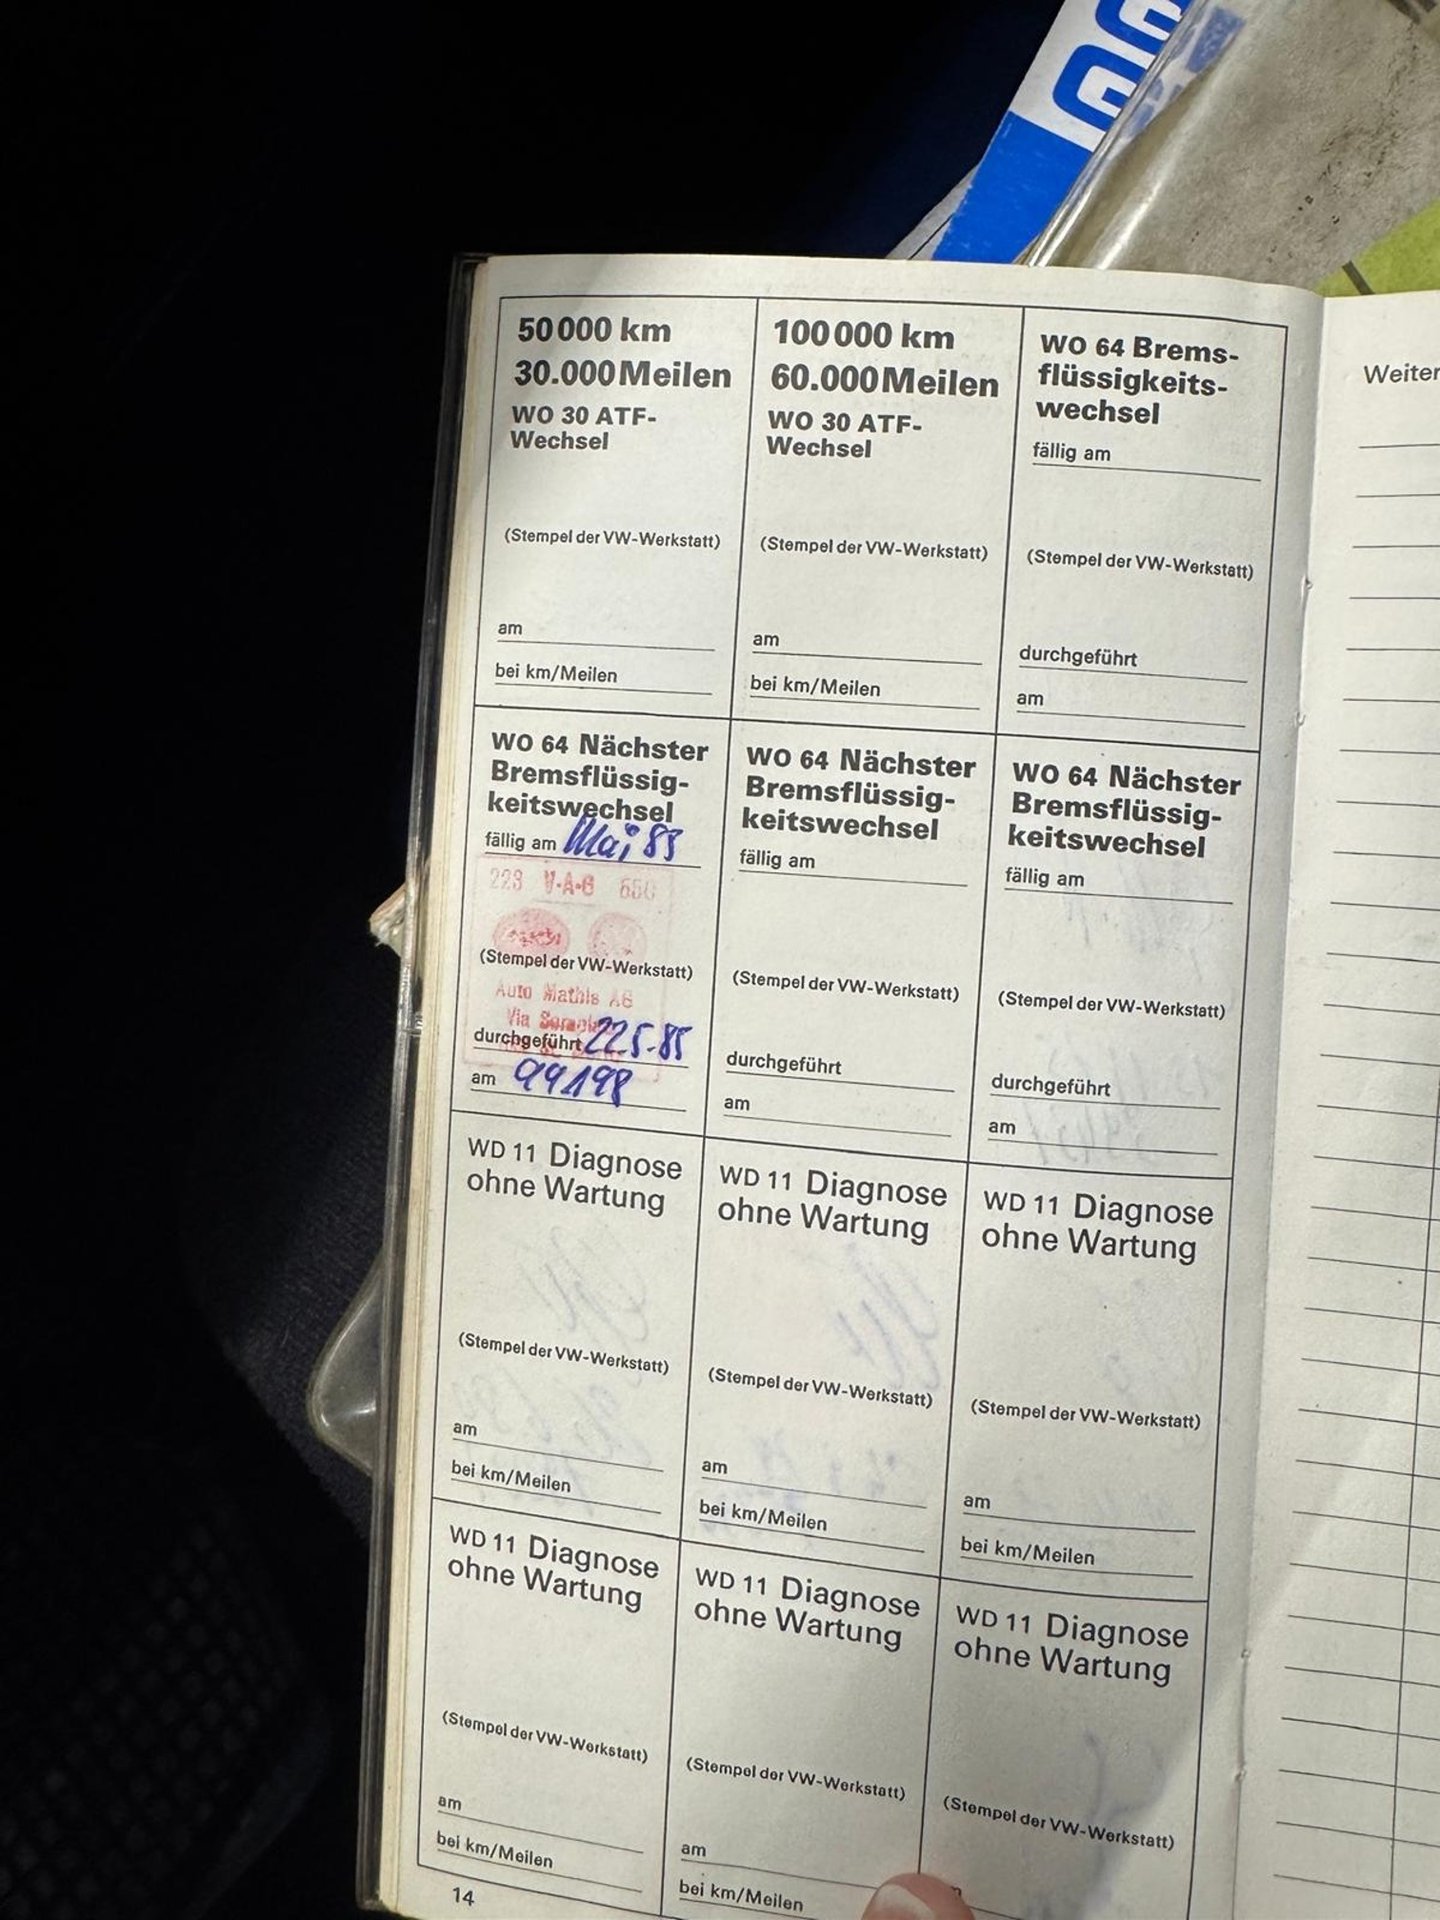 50 000 km
30.000 Meilen
WO 30 ATF-
Wechsel
(Stempel der VW-Werkstatt)
am
bei km/Meilen
100 000 km
60.000 Meilen
WO 30 ATF-
Wechsel
(Stempel der VW-Werkstatt)
am
bei km/Meilen
WO 64 Brems-
flüssigkeits-
wechsel
fällig am
(Stempel der VW-Werkstatt)
durchgeführt
am
WO 64 Nächster
Bremsflüssig-
keitswechsel
fällig am Mai 85
223 V·A·G 650
(Stempel der VW-Werkstatt)
Auto Mathis AG
Via
durchgeführt 22.5.85
am 99198
WO 64 Nächster
Bremsflüssig-
keitswechsel
fällig am
(Stempel der VW-Werkstatt)
durchgeführt
am
WO 64 Nächster
Bremsflüssig-
keitswechsel
fällig am
(Stempel der VW-Werkstatt)
durchgeführt
am
WD 11 Diagnose
ohne Wartung
(Stempel der VW-Werkstatt)
am
bei km/Meilen
WD 11 Diagnose
ohne Wartung
(Stempel der VW-Werkstatt)
am
bei km/Meilen
WD 11 Diagnose
ohne Wartung
(Stempel der VW-Werkstatt)
am
bei km/Meilen
WD 11 Diagnose
ohne Wartung
(Stempel der VW-Werkstatt)
am
bei km/Meilen
WD 11 Diagnose
ohne Wartung
(Stempel der VW-Werkstatt)
am
bei km/Meilen
WD 11 Diagnose
ohne Wartung
(Stempel der VW-Werkstatt)
14
Weiter